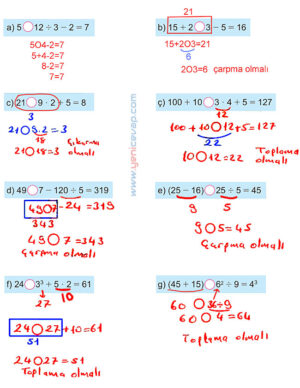 a) 5○12 ÷ 3 − 2 = 7
5○4-2=7
5+4-2=7
8-2=7
7=7
21
b) 15 + 2○3 − 5 = 16
15+2○3=21
6
2○3=6 çarpma olmalı
c) 21○9 · 2 + 5 = 8
3
21○9.2 = 3
18
21○18=3 Çıkarma olmalı
ç) 100 + 10○3 · 4 + 5 = 127
12
100+10○12+5=127
22
10○12=22 Toplama olmalı
d) 49○7 − 120 ÷ 5 = 319
49○7 -24 =319
343
49○7=343
Çarpma olmalı
e) (25 − 16)○25 ÷ 5 = 45
9 5
9○5=45
Çarpma olmalı
f) 24○3³ + 5 · 2 = 61
27 10
24○27 +10=61
51
24○27=51
Toplama olmalı
g) (45 + 15)○6² ÷ 9 = 4³
60○36÷9
60○4=64
Toplama olmalı
www.yenicevap.com